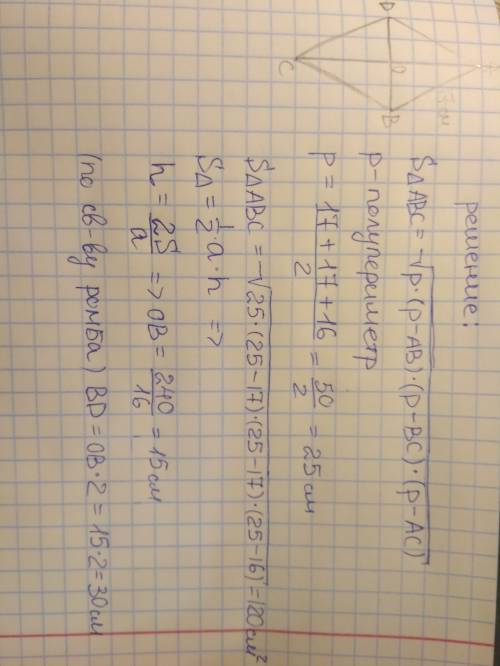 D
O
B
C
решение:
S∆ABC = √p·(p-AB)·(p-BC)·(p-AC)
p-полупериметр
p = 17+17+16/2 = 50/2 = 25см
S∆ABC = √25·(25-17)·(25-17)·(25-16) = 120см²
S∆ = 1/2 a·h =>
h = 2S/a => OB = 240/16 = 15см
(по св-ву ромба) BD = OB·2 = 15·2 = 30см